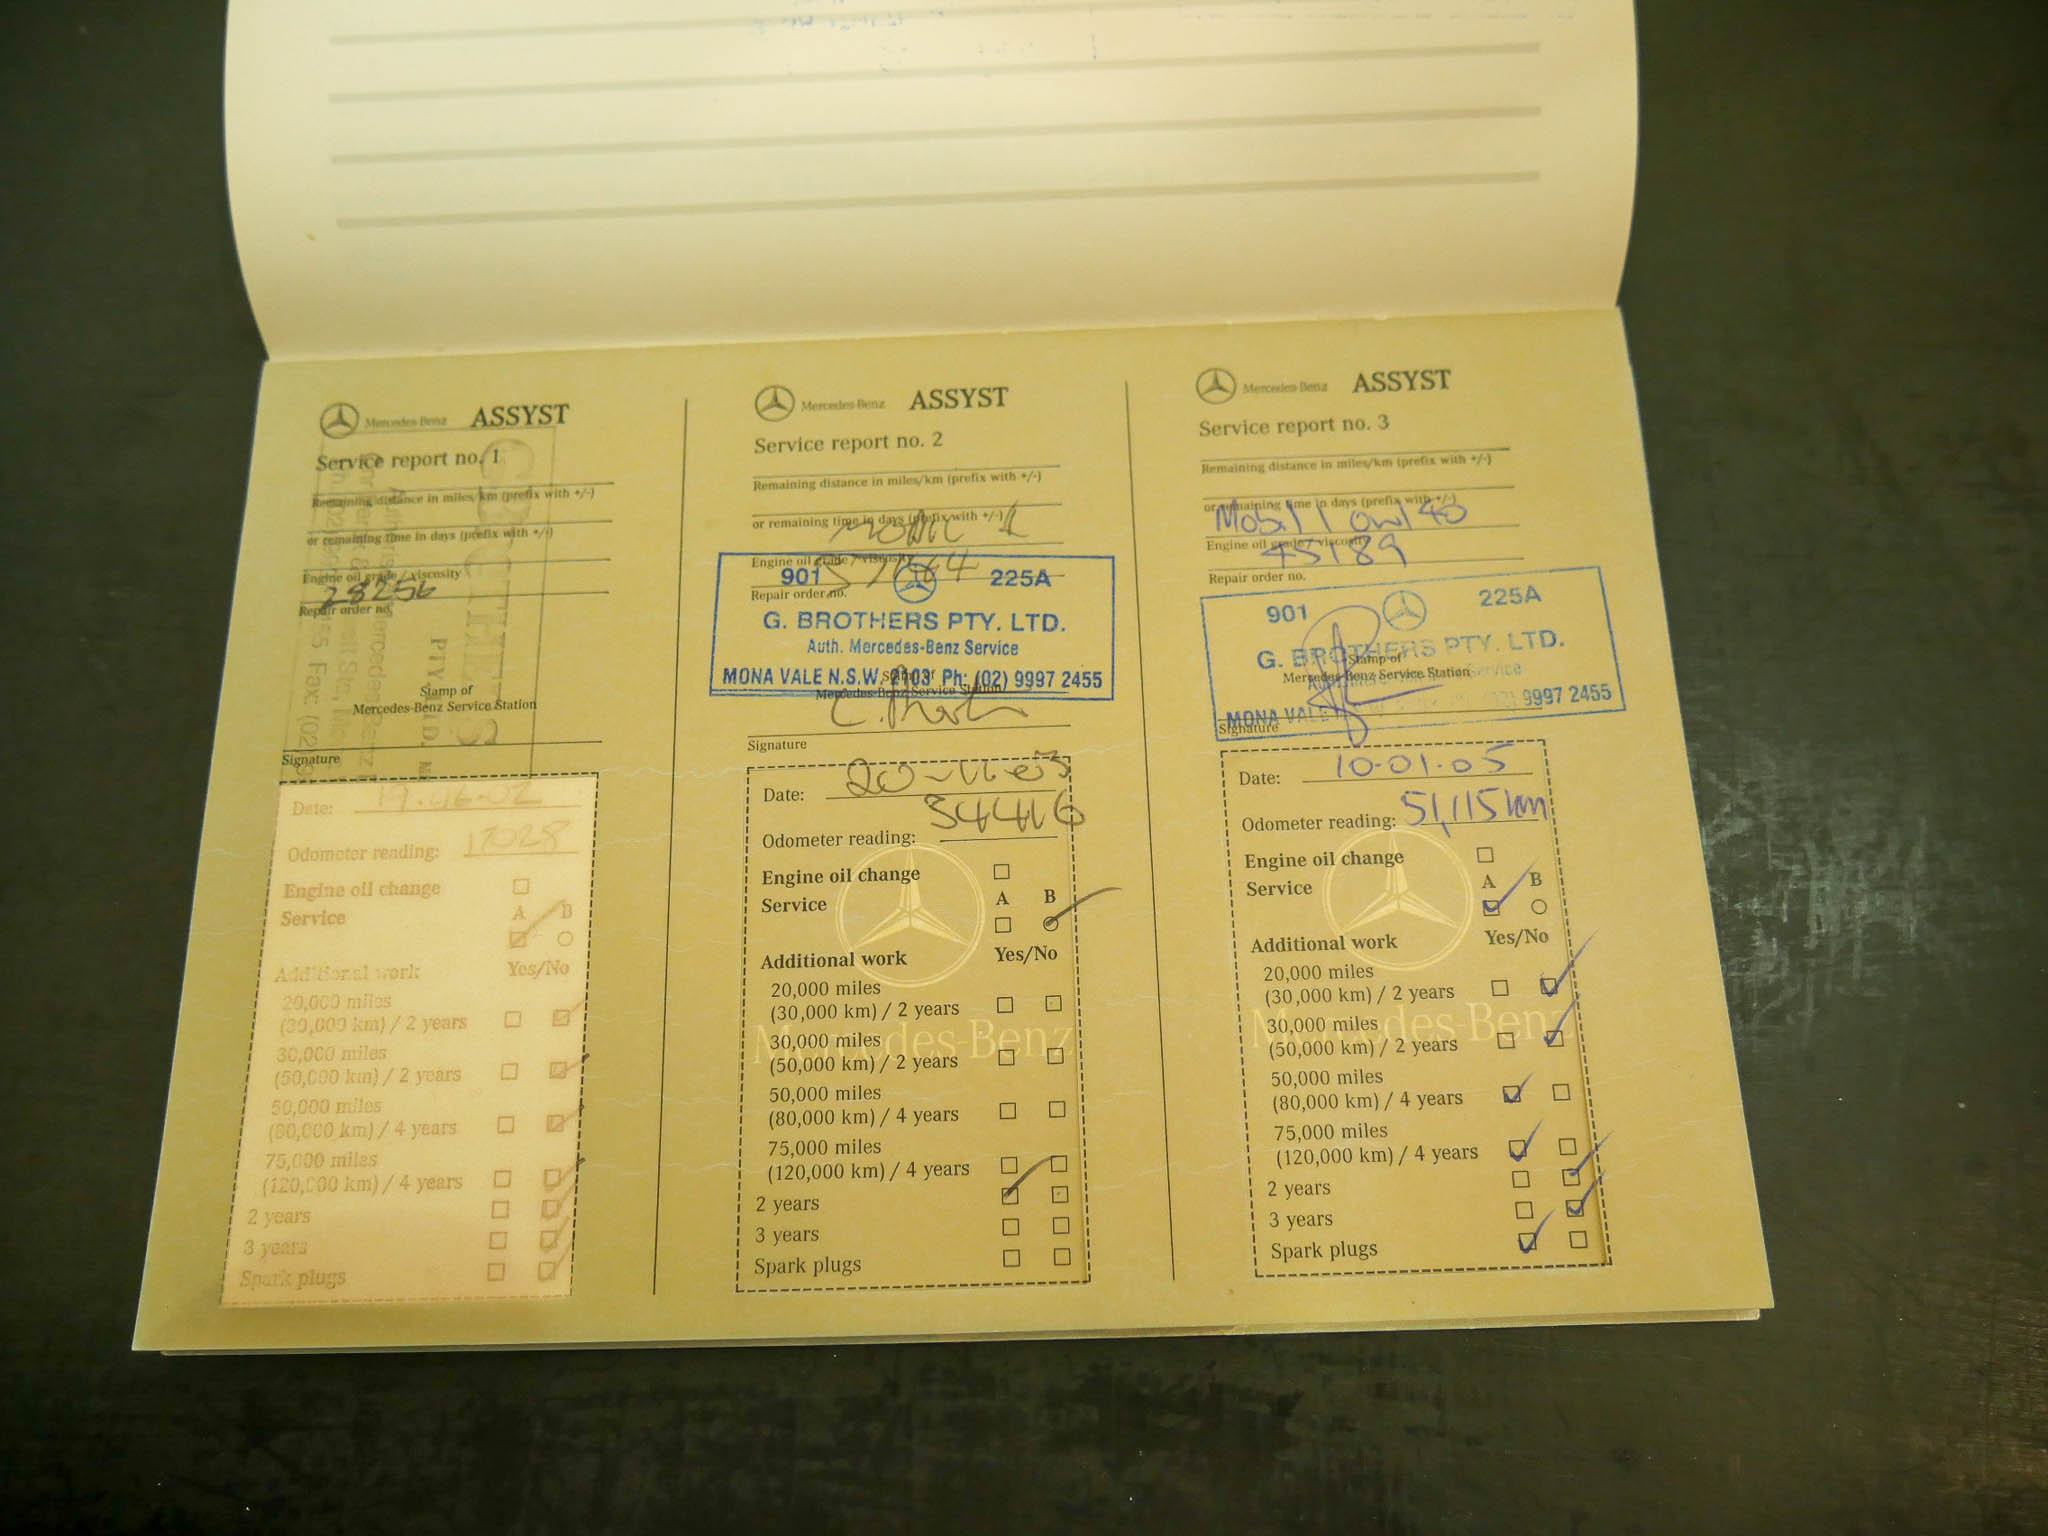 Mercedes-Benz ASSYST
Service report no. 1
Remaining distance in miles/km (prefix with +/-)
or remaining time in days (prefix with +/-)
Engine oil grade / viscosity
28256
Repair order no.
Stamp of
Mercedes-Benz Service Station
Signature
Date: 19.06.02
Odometer reading: 17028
Engine oil change
Service A B
Additional work Yes/No
20,000 miles
(30,000 km) / 2 years
30,000 miles
(50,000 km) / 2 years
50,000 miles
(80,000 km) / 4 years
75,000 miles
(120,000 km) / 4 years
2 years
3 years
Spark plugs
Mercedes-Benz ASSYST
Service report no. 2
Remaining distance in miles/km (prefix with +/-)
or remaining time in days (prefix with +/-)
Engine oil grade / viscosity
Repair order no.
901 225A
G. BROTHERS PTY. LTD.
Auth. Mercedes-Benz Service
MONA VALE N.S.W. 2103 Ph: (02) 9997 2455
Stamp of
Mercedes-Benz Service Station
Signature
Date: 20-11-03
Odometer reading: 34416
Engine oil change
Service A B
Additional work Yes/No
20,000 miles
(30,000 km) / 2 years
30,000 miles
(50,000 km) / 2 years
50,000 miles
(80,000 km) / 4 years
75,000 miles
(120,000 km) / 4 years
2 years
3 years
Spark plugs
Mercedes-Benz
Mercedes-Benz ASSYST
Service report no. 3
Remaining distance in miles/km (prefix with +/-)
or remaining time in days (prefix with +/-)
Mobil 1 0w/40
Engine oil grade / viscosity
45189
Repair order no.
901 225A
G. BROTHERS PTY. LTD.
Stamp of
Mercedes-Benz Service Station
MONA VALE 9997 2455
Signature
Date: 10-01-05
Odometer reading: 51,115km
Engine oil change
Service A B
Additional work Yes/No
20,000 miles
(30,000 km) / 2 years
30,000 miles
(50,000 km) / 2 years
50,000 miles
(80,000 km) / 4 years
75,000 miles
(120,000 km) / 4 years
2 years
3 years
Spark plugs
Mercedes-Benz